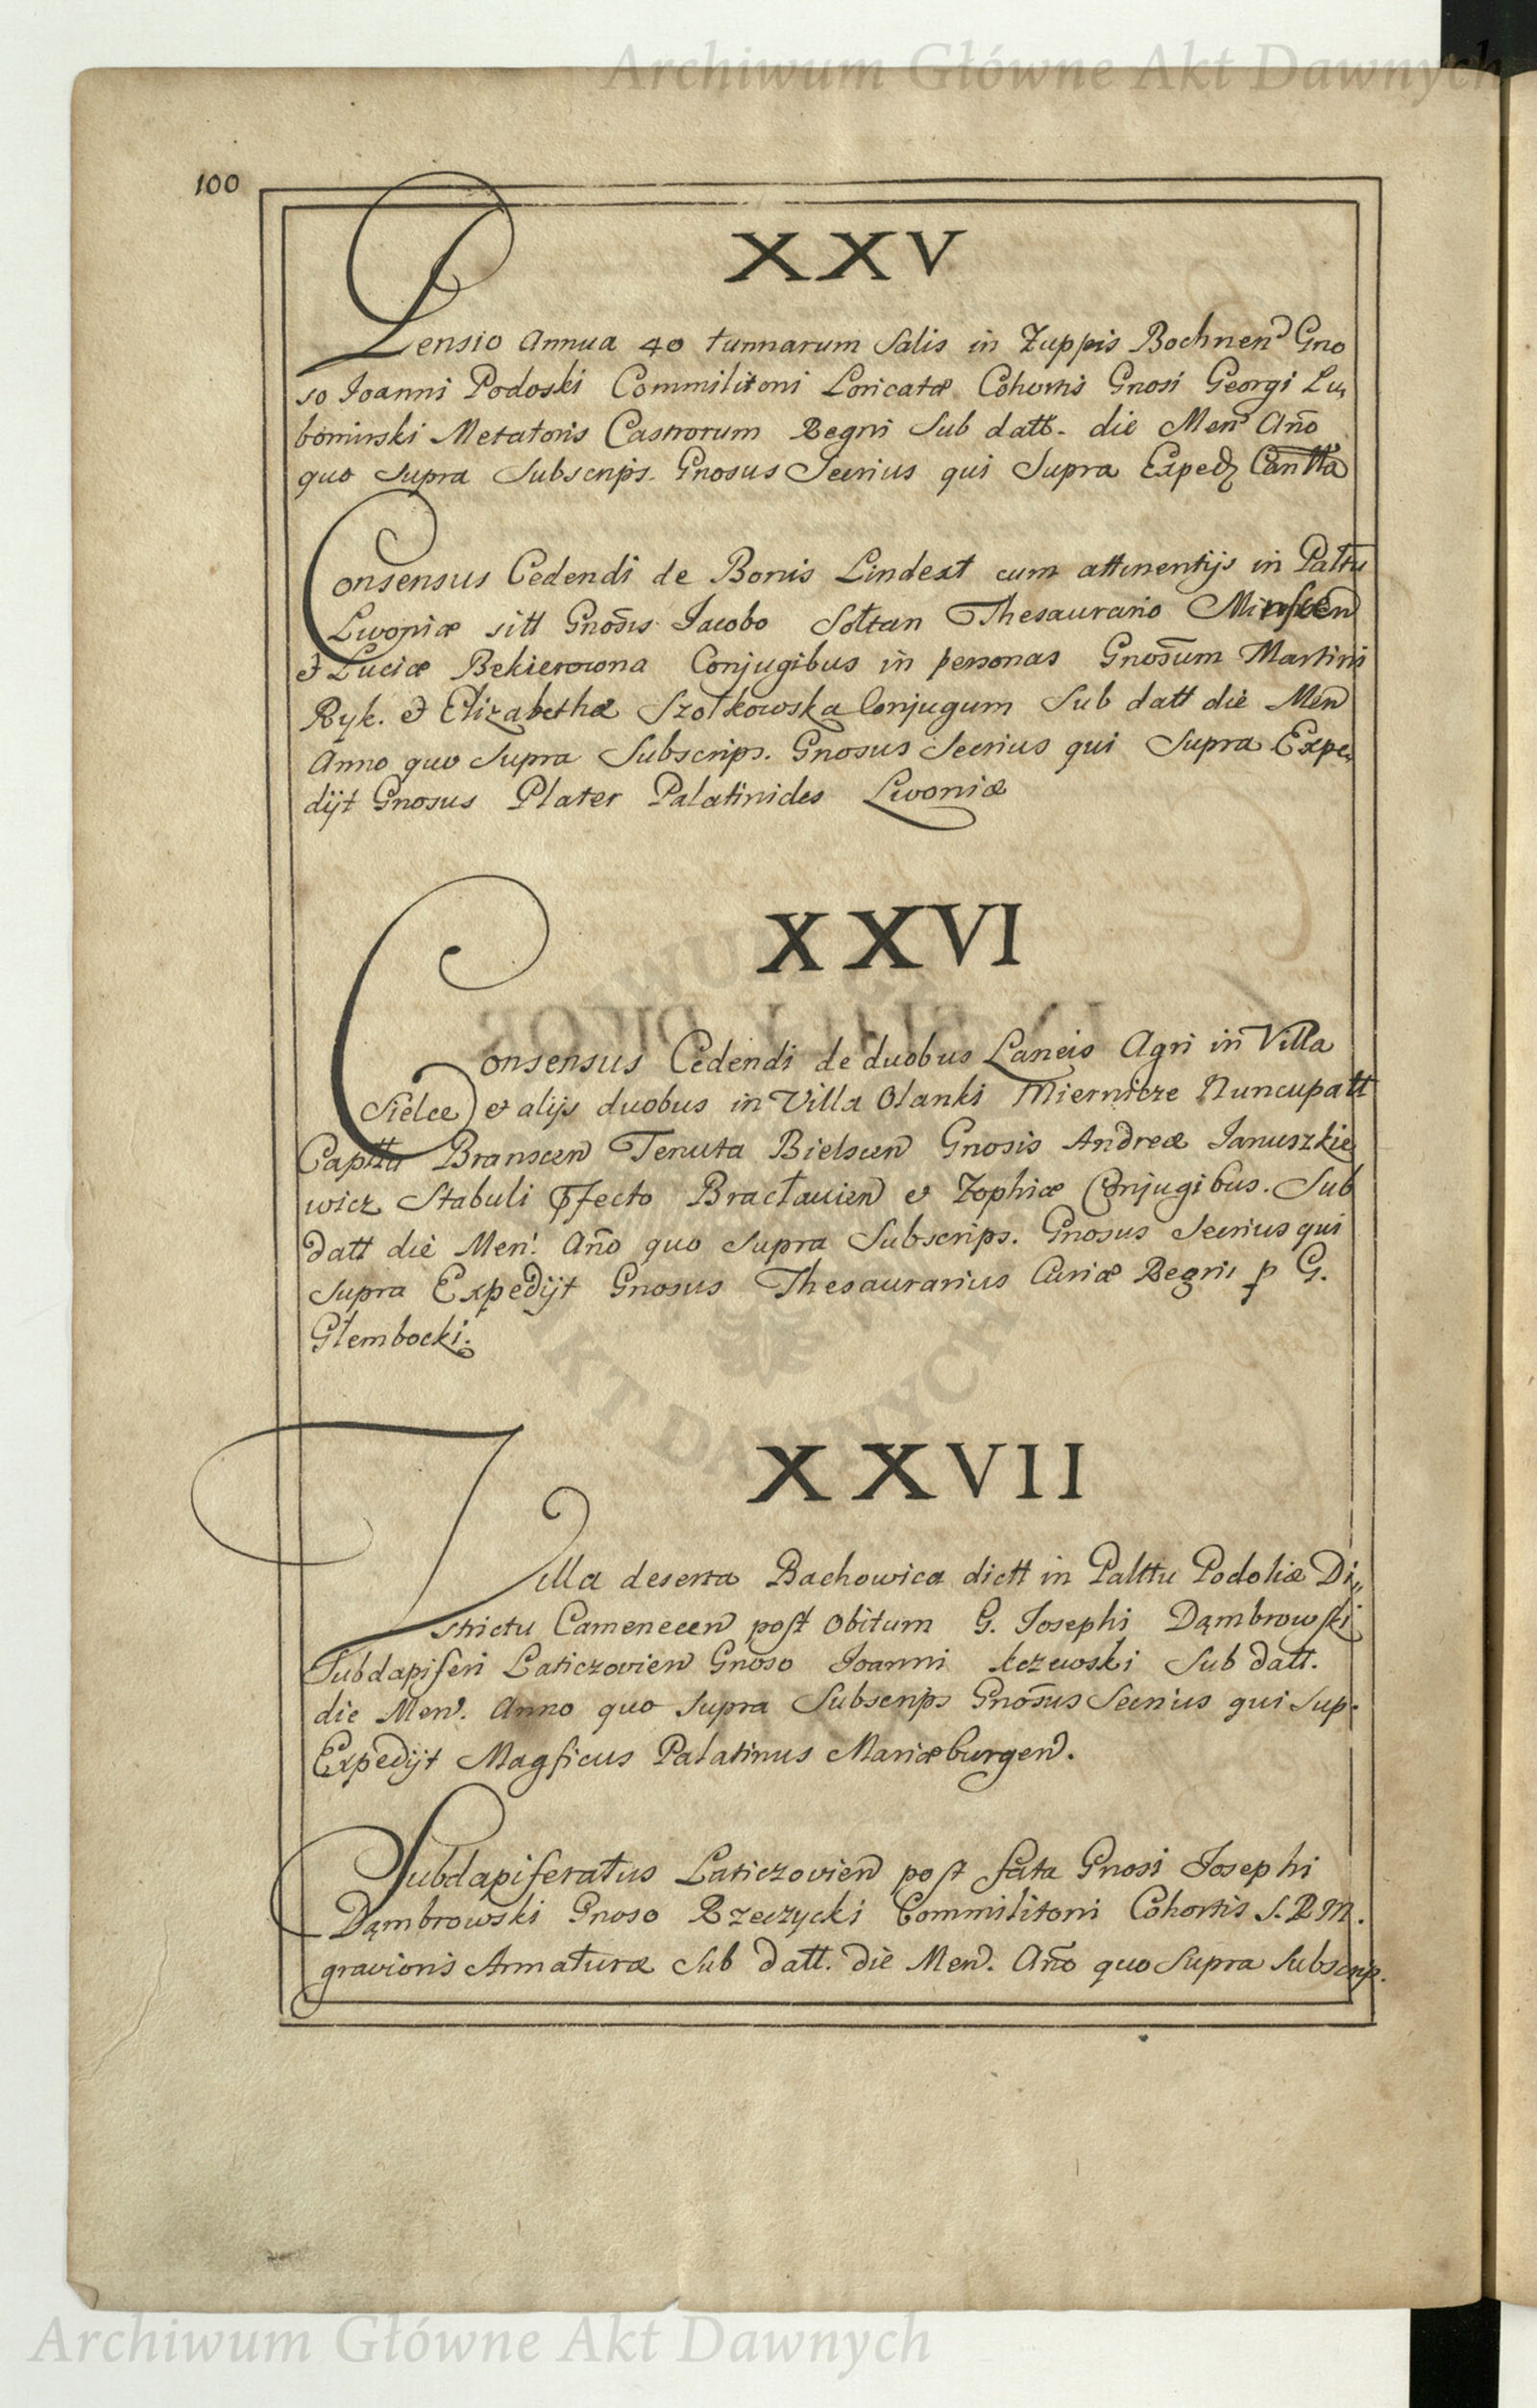 Archiwum Główne Akt Dawnych
100
XXV
Pensio Annua 40 tunnarum Salis in Zuppis Bochnen Gno
so Joanni Podoski Commilitoni Loricatæ Cohortis Gnosi Georgi Lu,
bomirski Metatoris Castrorum Regni Sub datt. die Men Año
quo Supra Subscrips. Gnosus Secrius qui Supra Exped Can
Consensus Cedendi de Bonis Lindext cum attinentijs in Palttu
Livoniæ sitt Gnosis Jacobo Sołtan Thesaurario Minscen
et Luciæ Bekierowna Conjugibus in personas Gnosum Martini
Ryk. et Elizabethæ Szolkowska Conjugum Sub datt die Men
Anno quo Supra Subscrips. Gnosus Secrius qui Supra Expe,
dijt Gnosus Plater Palatinides Livoniæ
XXVI
Consensus Cedendi de duobus Laneis Agri in Villa
Sielce et alijs duobus in Villa Olanki Miernicze Nuncupatt
Capttu Branscen Tenuta Bielscen Gnosis Andreæ Januszkie
wicz Stabuli Pfecto Bractavien et Zophiæ Conjugibus. Sub
datt die Men. Año quo Supra Subscrips. Gnosus Secrius qui
Supra Expedijt Gnosus Thesaurarius Curiæ Regni p G.
Głembocki.
XXVII
Villa deserta Bachowica dictt in Palttu Podoliæ Di,,
strictu Camenecen post obitum G. Josephi Dąmbrowski
Subdapiferi Laticzovien Gnoso Joanni Łczewski Sub datt.
die Men. Anno quo Supra Subscrips Gnosus Secrius qui Sup.
Expedijt Magficus Palatinus Mariæburgen.
Subdapiferatus Laticzovien post fata Gnosi Josephi
Dąmbrowski Gnoso Rzeczycki Commilitoni Cohortis S. R M.
gravioris Armaturæ Sub datt. die Men. Año quo Supra Subscrip.
Archiwum Główne Akt Dawnych